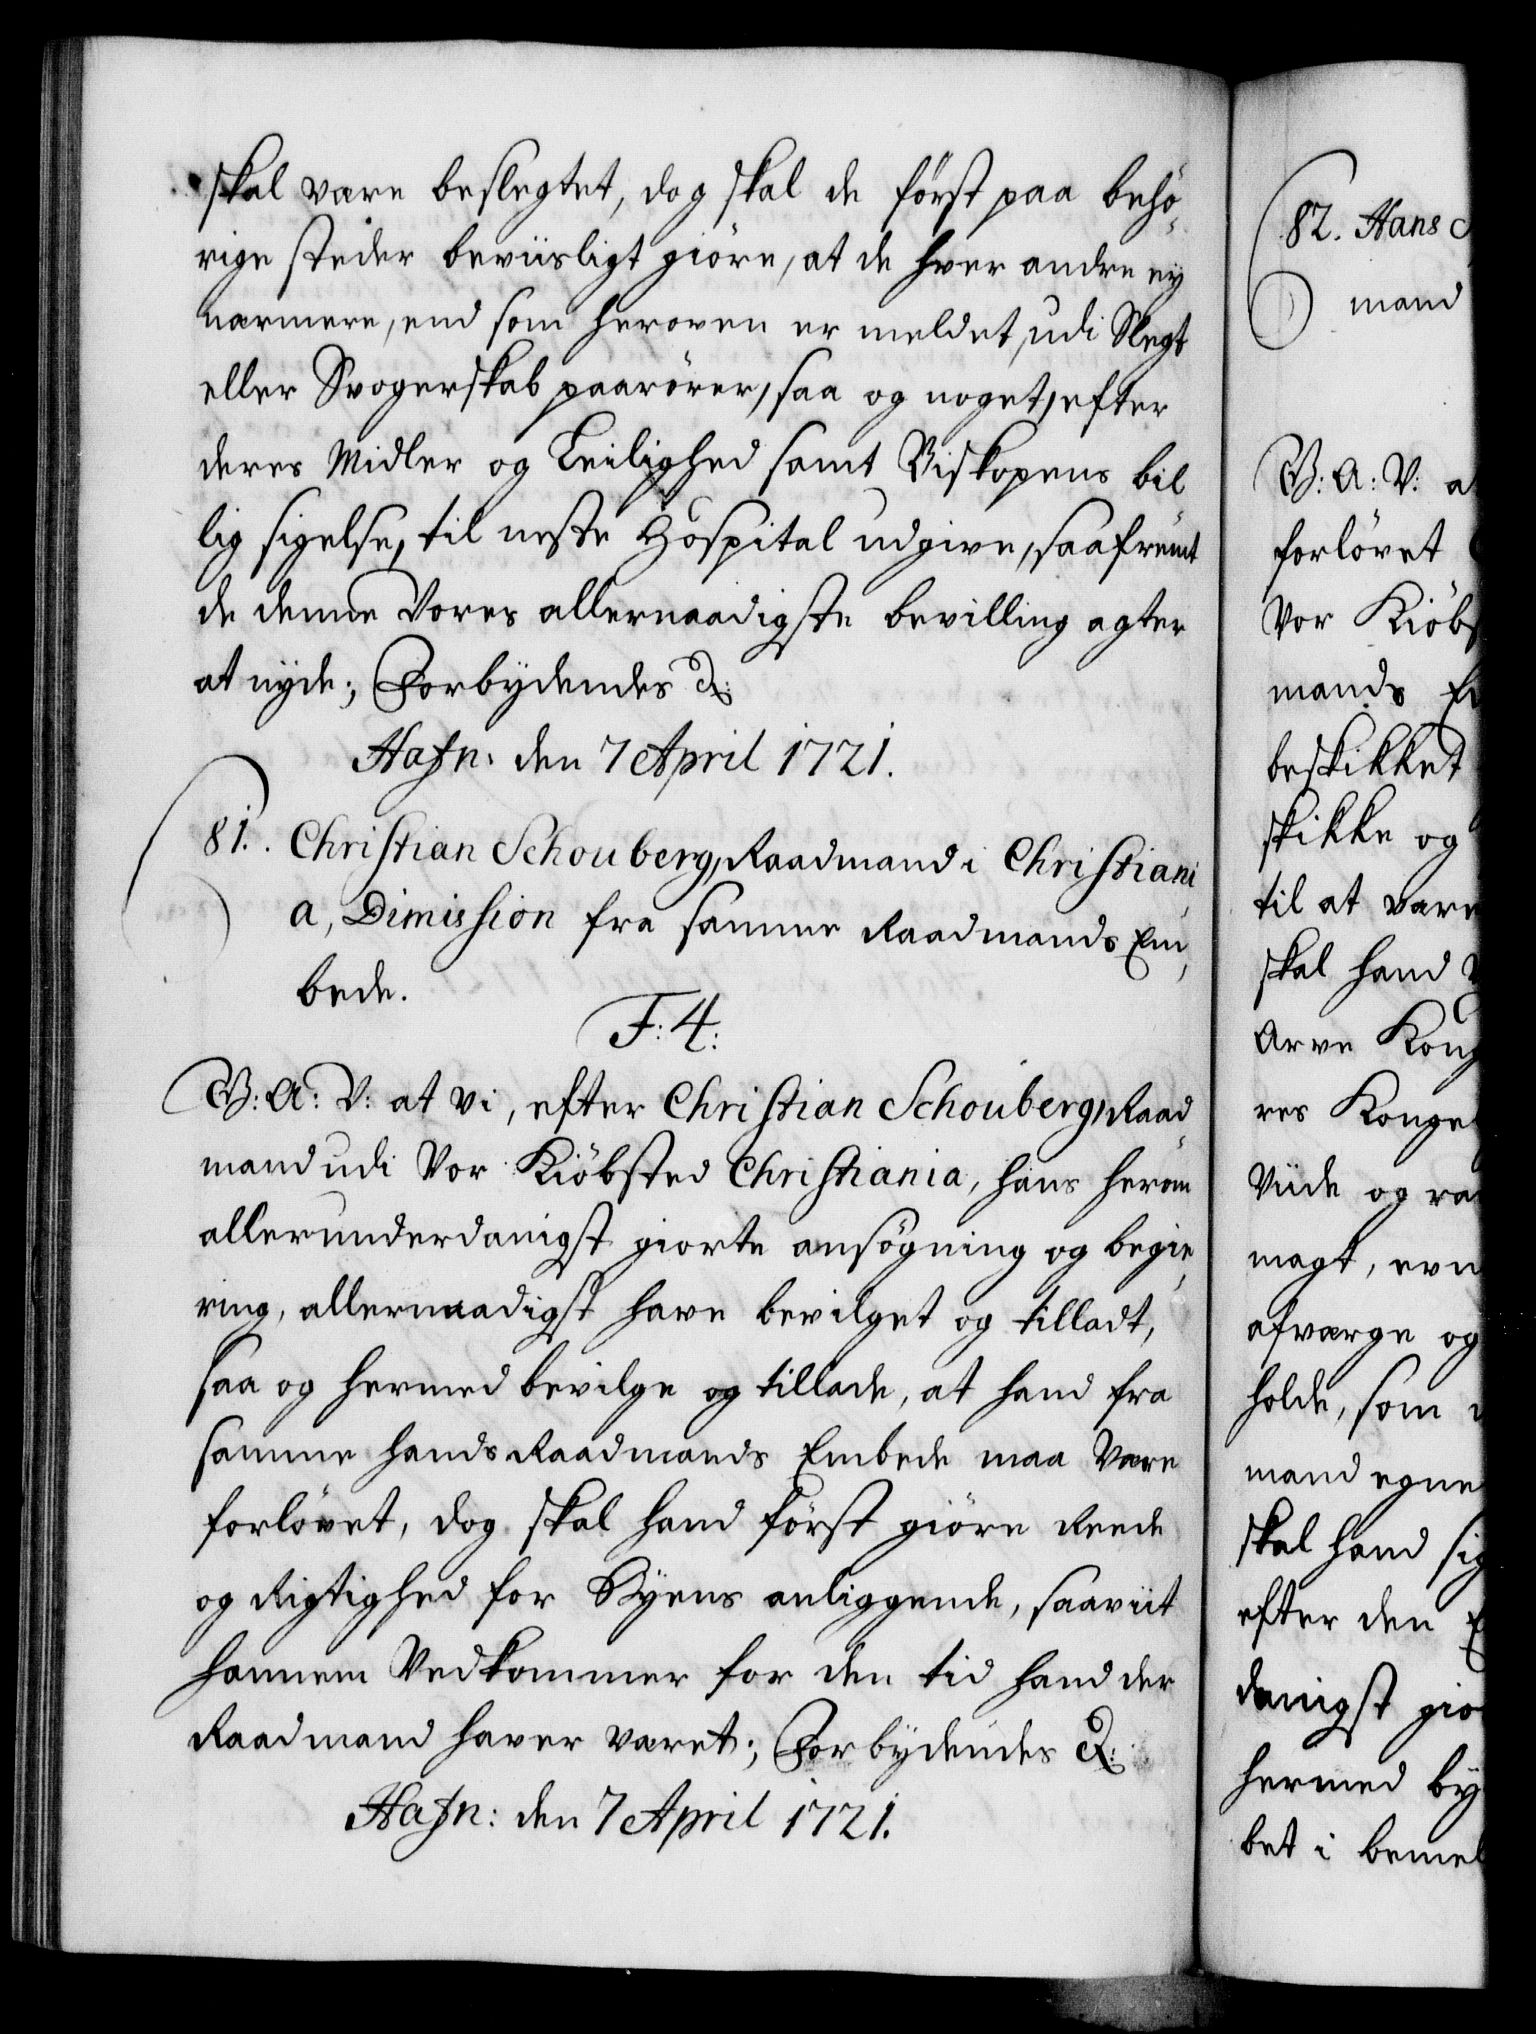 skal være beslegtet, dog skal de först paa behö,
rige steder beviisligt giöre, at de hver andre ey
nærmere, end som heroven er meldet, udi Slegt
eller Svogerskab paarörer, saa og noget, efter
deres Midler og Leilighed samt Biskopens bil
lig sigelse, til neste Hospital udgive, saafremt
de denne Vores allernaadigste bevilling agter
at nyde; Forbydendes &:
Hafn: den 7 April 1721.
81. Christian Schouberg, Raadmand i Christiani
a, Dimission fra samme Raadmands Em,
bede.
F: 4:
G: A: V: at vi, efter Christian Schouberg, Raad
mand udi Vor Kiöbsted Christiania, hans herom
allerunderdanigst giorte ansögning og begie,
ring, allernaadigst have bevilget og tilladt,
saa og hermed bevilge og tillade, at hand fra
samme hands Raadmands Embede maa være
forlövet, dog skal hand först giöre Reede
og Rigtighed for Byens anliggende, saaviit
hannem Vedkommer for den tid hand der
Raadmand haver været; Forbydendes &:
Hafn: den 7 April 1721.
82. Hans
mand
G: A: V: a
forlövet
Vor Kiöbs
mands E
beskikket
skikke og
til at være
skal hand
Arve Kong
res Konge
Viide og ra
magt, evn
afværge og
holde, som
mand egne
skal hand sig
efter den E
danigst gio
hermed by
bet i bemel